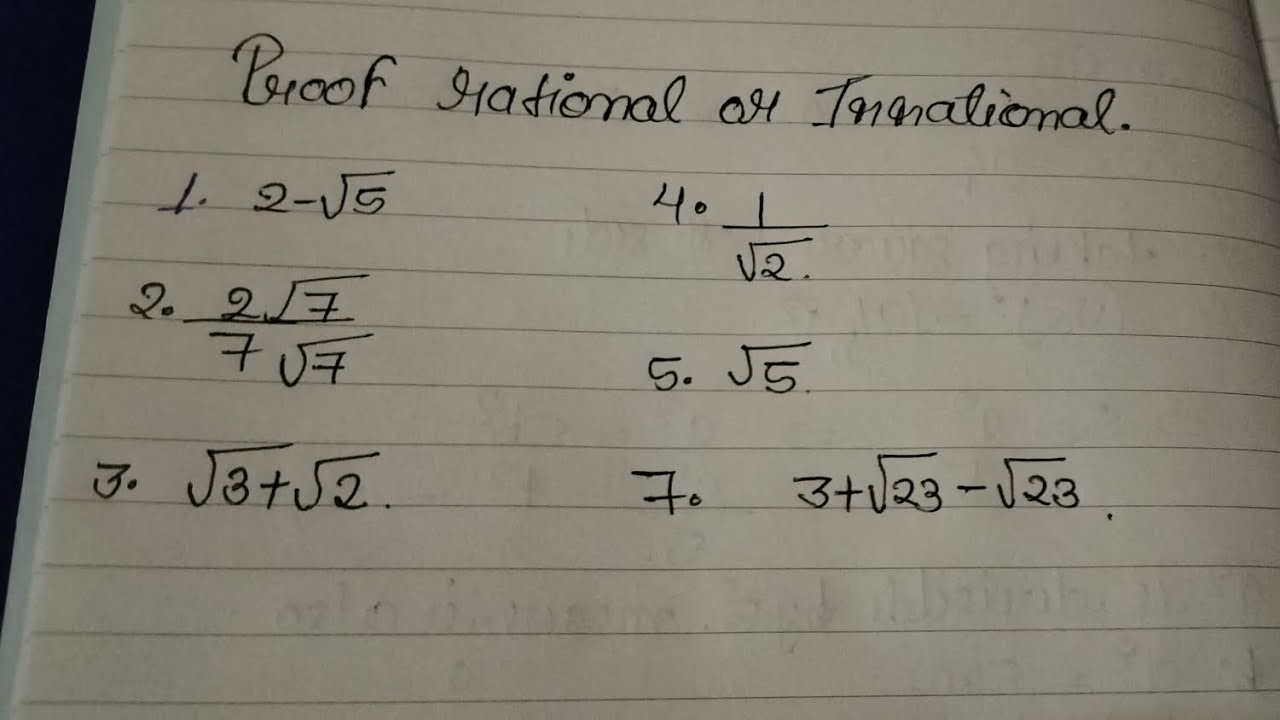 Proof rational or Irrational.
1. 2-√5
4. 1/√2.
2. 2√7/7√7
5. √5.
3. √3+√2.
7. 3+√23-√23.